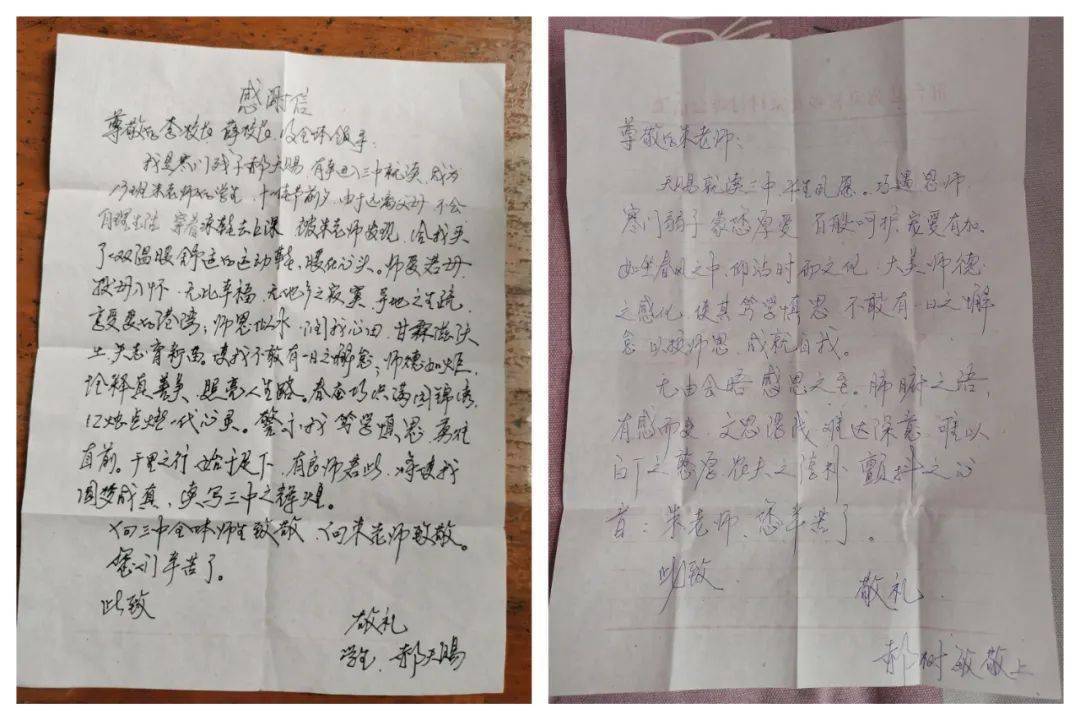 感谢信
尊敬的李校长、薛校长、及全体领导：
我是寒门弱子郝天赐 有幸进入三中就读，成为
13班朱老师的学生，十一月 前夕，由于远离父母 不会
自理生活 穿着凉鞋去上课 被朱老师发现，给我买
了一双温暖舒适的运动鞋，暖在心头。师爱若母，
投母入怀，无比幸福，无他乡之寂寞、异地之生疏，
享受爱的港湾；师恩似水 润我心田，甘霖滋沃
土，英才育新苗。使我不敢有一日之懈怠；师德如炬，
诠释真善美，照亮人生路。春蚕巧织满园锦绣，
红烛点燃一代心灵。鉴于 我笃学慎思，勇往
直前。千里之行，始于足下，有良师若此，将使我
圆梦成真，续写三中之辉煌。
向三中全体师生致敬，向朱老师致敬。
您们辛苦了。
此致
敬礼
学生：郝天赐
尊敬的朱老师：
天赐就读三中，平生凤愿。巧遇恩师，
寒门弱子 蒙您厚爱 百般呵护，宠爱有加。
如坐春风之中，仰沾时雨之化，大美师德
之感化，使其笃学慎思 不敢有一日之懈
怠 以报师恩，成就自我。
无由会晤 感恩之至。肺腑之语，
有感而发，文思浅浅，难达深意，唯以
白丁之 厚，农夫之 朴 颤抖之心
言：朱老师，您辛苦了。
此致
敬礼
郝树敏敬上